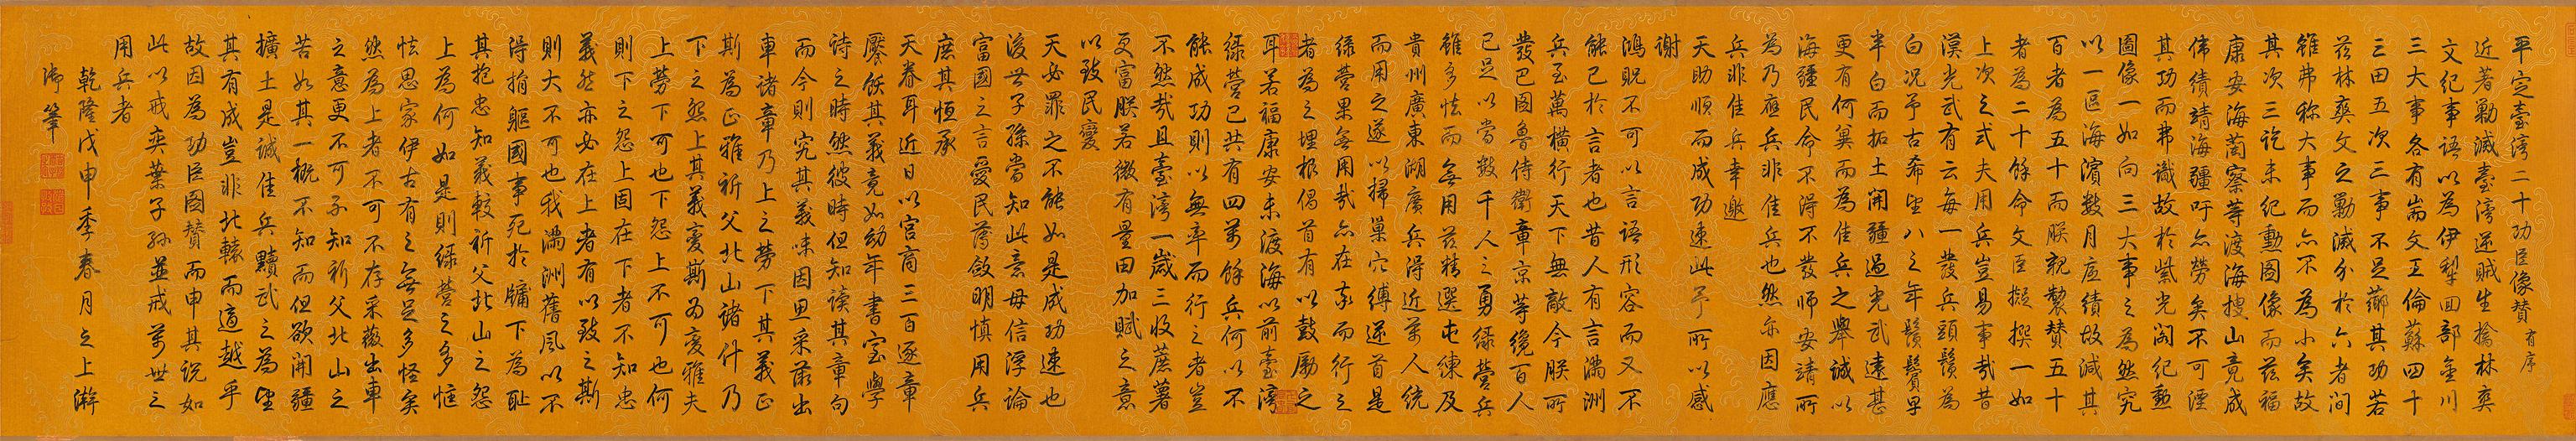 平定臺灣二十功臣像贊有序
近著勦滅臺灣逆賊生擒林爽
文紀事語以為伊犁回部金川
三大事各有耑文王倫蘇四十
三田五次三事不足薌其功若
茲林爽文之勦滅介於六者間
雖弗稱大事而亦不為小矣故
其次三訖未紀勳圖像而茲福
康安海蘭察等渡海搜山竟成
偉績靖海疆吁亦勞矣不可湮
其功而弗識故於紫光閣紀勳
圖像一如向三大事之為然究
以一區海濱數月底績故減其
百者為五十而朕親製贊五十
者為二十餘命文臣擬撰一如
上次之式夫用兵豈易事哉昔
漢光武有云每一發兵頭鬢為
白況予古希望八之年鬚鬢早
半白而拓土開疆過光武遠甚
更有何冀而為佳兵之舉誠以
海疆民命不得不發師安靖所
為乃應兵非佳兵也然亦因應
兵非佳兵幸邀
天助順而成功速此予所以感
謝
鴻貺不可以言語形容而又不
能已於言者也昔人有言滿洲
兵至萬橫行天下無敵今朕所
發巴圖魯侍衛章京等纔百人
已足以當數千人之勇綠營兵
雖多怯而無用茲精選屯練及
貴州廣東湖廣兵得近萬人統
而用之遂以掃巢穴縛逆首是
綠營果無用哉亦在率而行之
者為之埋根倡首有以鼓勵之
耳若福康安未渡海以前臺灣
綠營已共有四萬餘兵何以不
能成功則以無率而行之者豈
不然哉且臺灣一歲三收蔗薯
更富朕若微有量田加賦之意
以致民變
天必罪之不能如是成功速也
後世子孫當知此意毋信浮論
富國之言愛民薄斂明慎用兵
庶其恒承
天眷耳近日以宮商三百逐章
饜飫其義竟如幼年書室學
詩之時然彼時但知讀其章句
而今則究其義味因思采薇出
車諸章乃上之勞下其義正
斯為正雅祈父北山諸什乃
下之怨上其義變斯為變雅夫
上勞下可也下怨上不可也何
則下之怨上固在下者不知忠
義然亦必在上者有以致之斯
則大不可也我滿洲舊風以不
得捐軀國事死於牖下為恥
其抱忠知義較祈父北山之怨
上為何如是則綠營之多恇
怯思家伊古有之無足多怪矣
然為上者不可不存采薇出車
之意更不可不知祈父北山之
苦如其一概不知而但欲開疆
擴土是誠佳兵黷武之為望
其有成豈非北轅而適越乎
故因為功臣圖贊而申其說如
此以戒奕葉子孫並戒萬世之
用兵者
乾隆戊申季春月之上澣
御筆